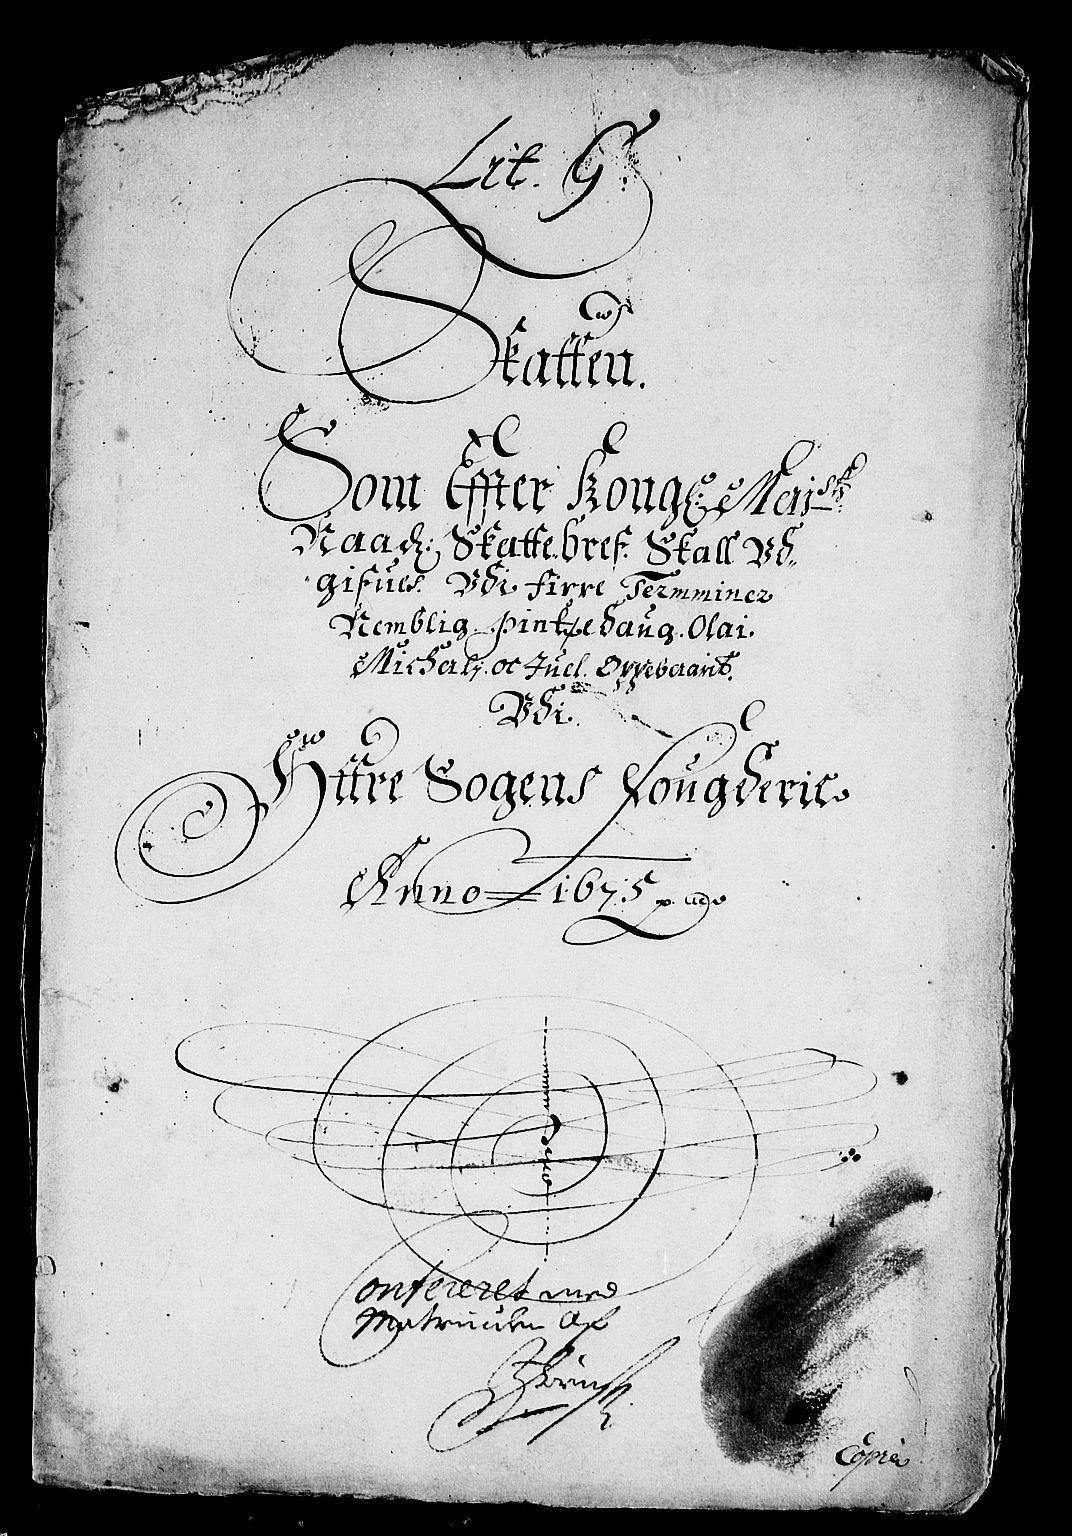 Lit. G:
Skatten.
Som Effter Kongl: Maj:sts
Naad: Skatte.bref. Skall Vd=
gifues. Vdi firre Termminer
Nemblig. Pintzedaug. Olai.
Michaeli. oc Juel. Oppebaarit.
Vdi.
Yttre Sogens Fougderie
Anno = 1675
Confereret med
Matriculen Af
Copia